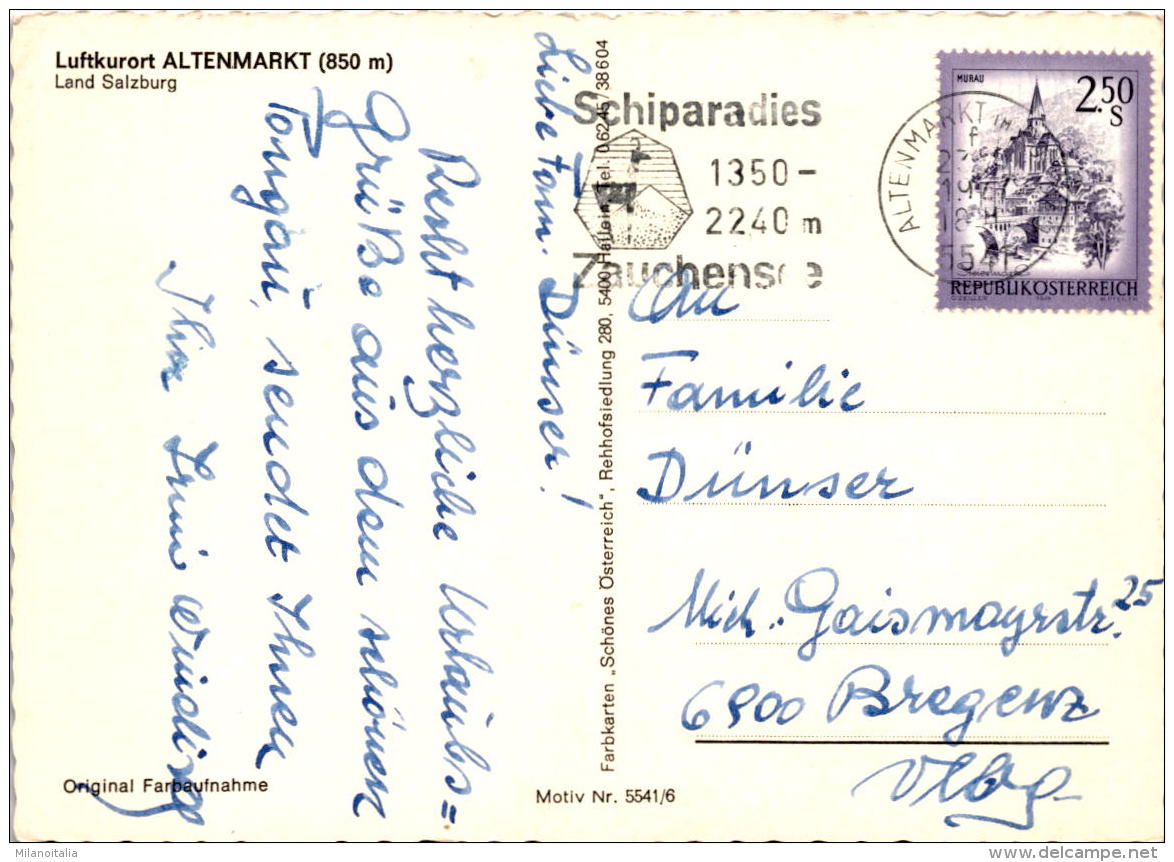 Luftkurort ALTENMARKT (850 m)
Land Salzburg
Liebe Fam. Dünser!
Recht herzliche Urlaubs=
Grüße aus dem schönen
Pongau, sendet Ihnen
Ihre Irmi
Original Farbaufnahme
Motiv Nr. 5541/6
Farbkarten „Schönes Österreich", Rehhofsiedlung 280, 5400 Hallein, Tel. 06245/38604
Schiparadies
1350-
2240 m
Zauchensee
ALTENMARKT IM
MURAU
2.50
S
REPUBLIK ÖSTERREICH
An
Familie
Dünser
Mich. Gaismayrstr. 25
6900 Bregenz
Vlbg.
Milanoitalia
www.delcampe.net